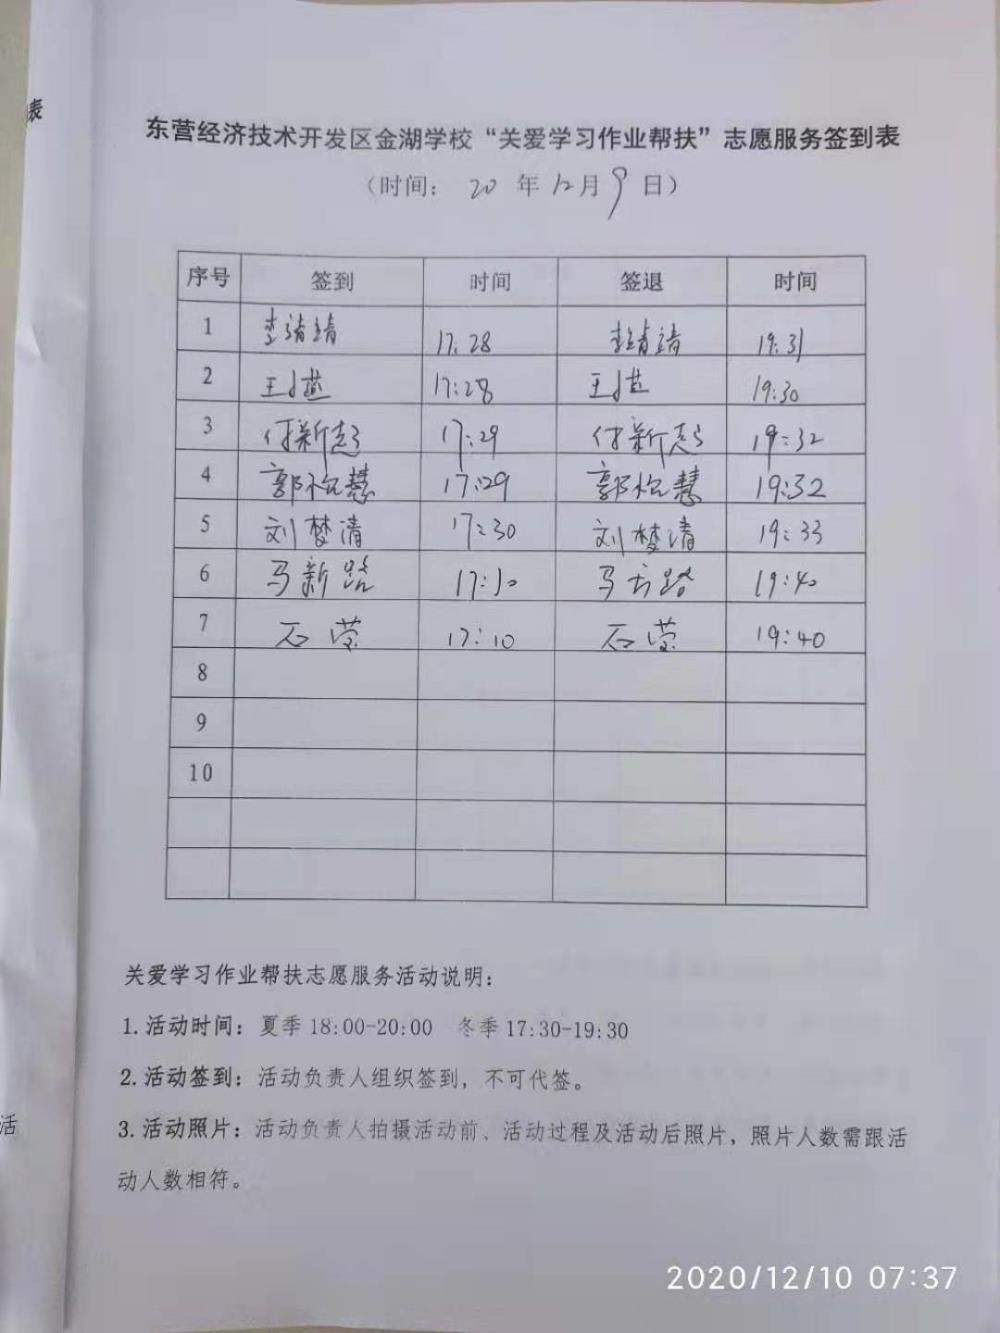 表
东营经济技术开发区金湖学校“关爱学习作业帮扶”志愿服务签到表
（时间： 20 年 12 月 9 日）
序号 签到 时间 签退 时间
1 李靖靖 17:28 李靖靖 19:31
2 王 17:28 王 19:30
3 付新彭 17:29 付新彭 19:32
4 郭 慧 17:29 郭 慧 19:32
5 刘梦清 17:30 刘梦清 19:33
6 马新路 17:10 马 路 19:40
7 石莹 17:10 石莹 19:40
8
9
10
关爱学习作业帮扶志愿服务活动说明：
1.活动时间：夏季 18:00-20:00 冬季 17:30-19:30
2.活动签到：活动负责人组织签到，不可代签。
3.活动照片：活动负责人拍摄活动前、活动过程及活动后照片，照片人数需跟活
动人数相符。
活
2020/12/10 07:37